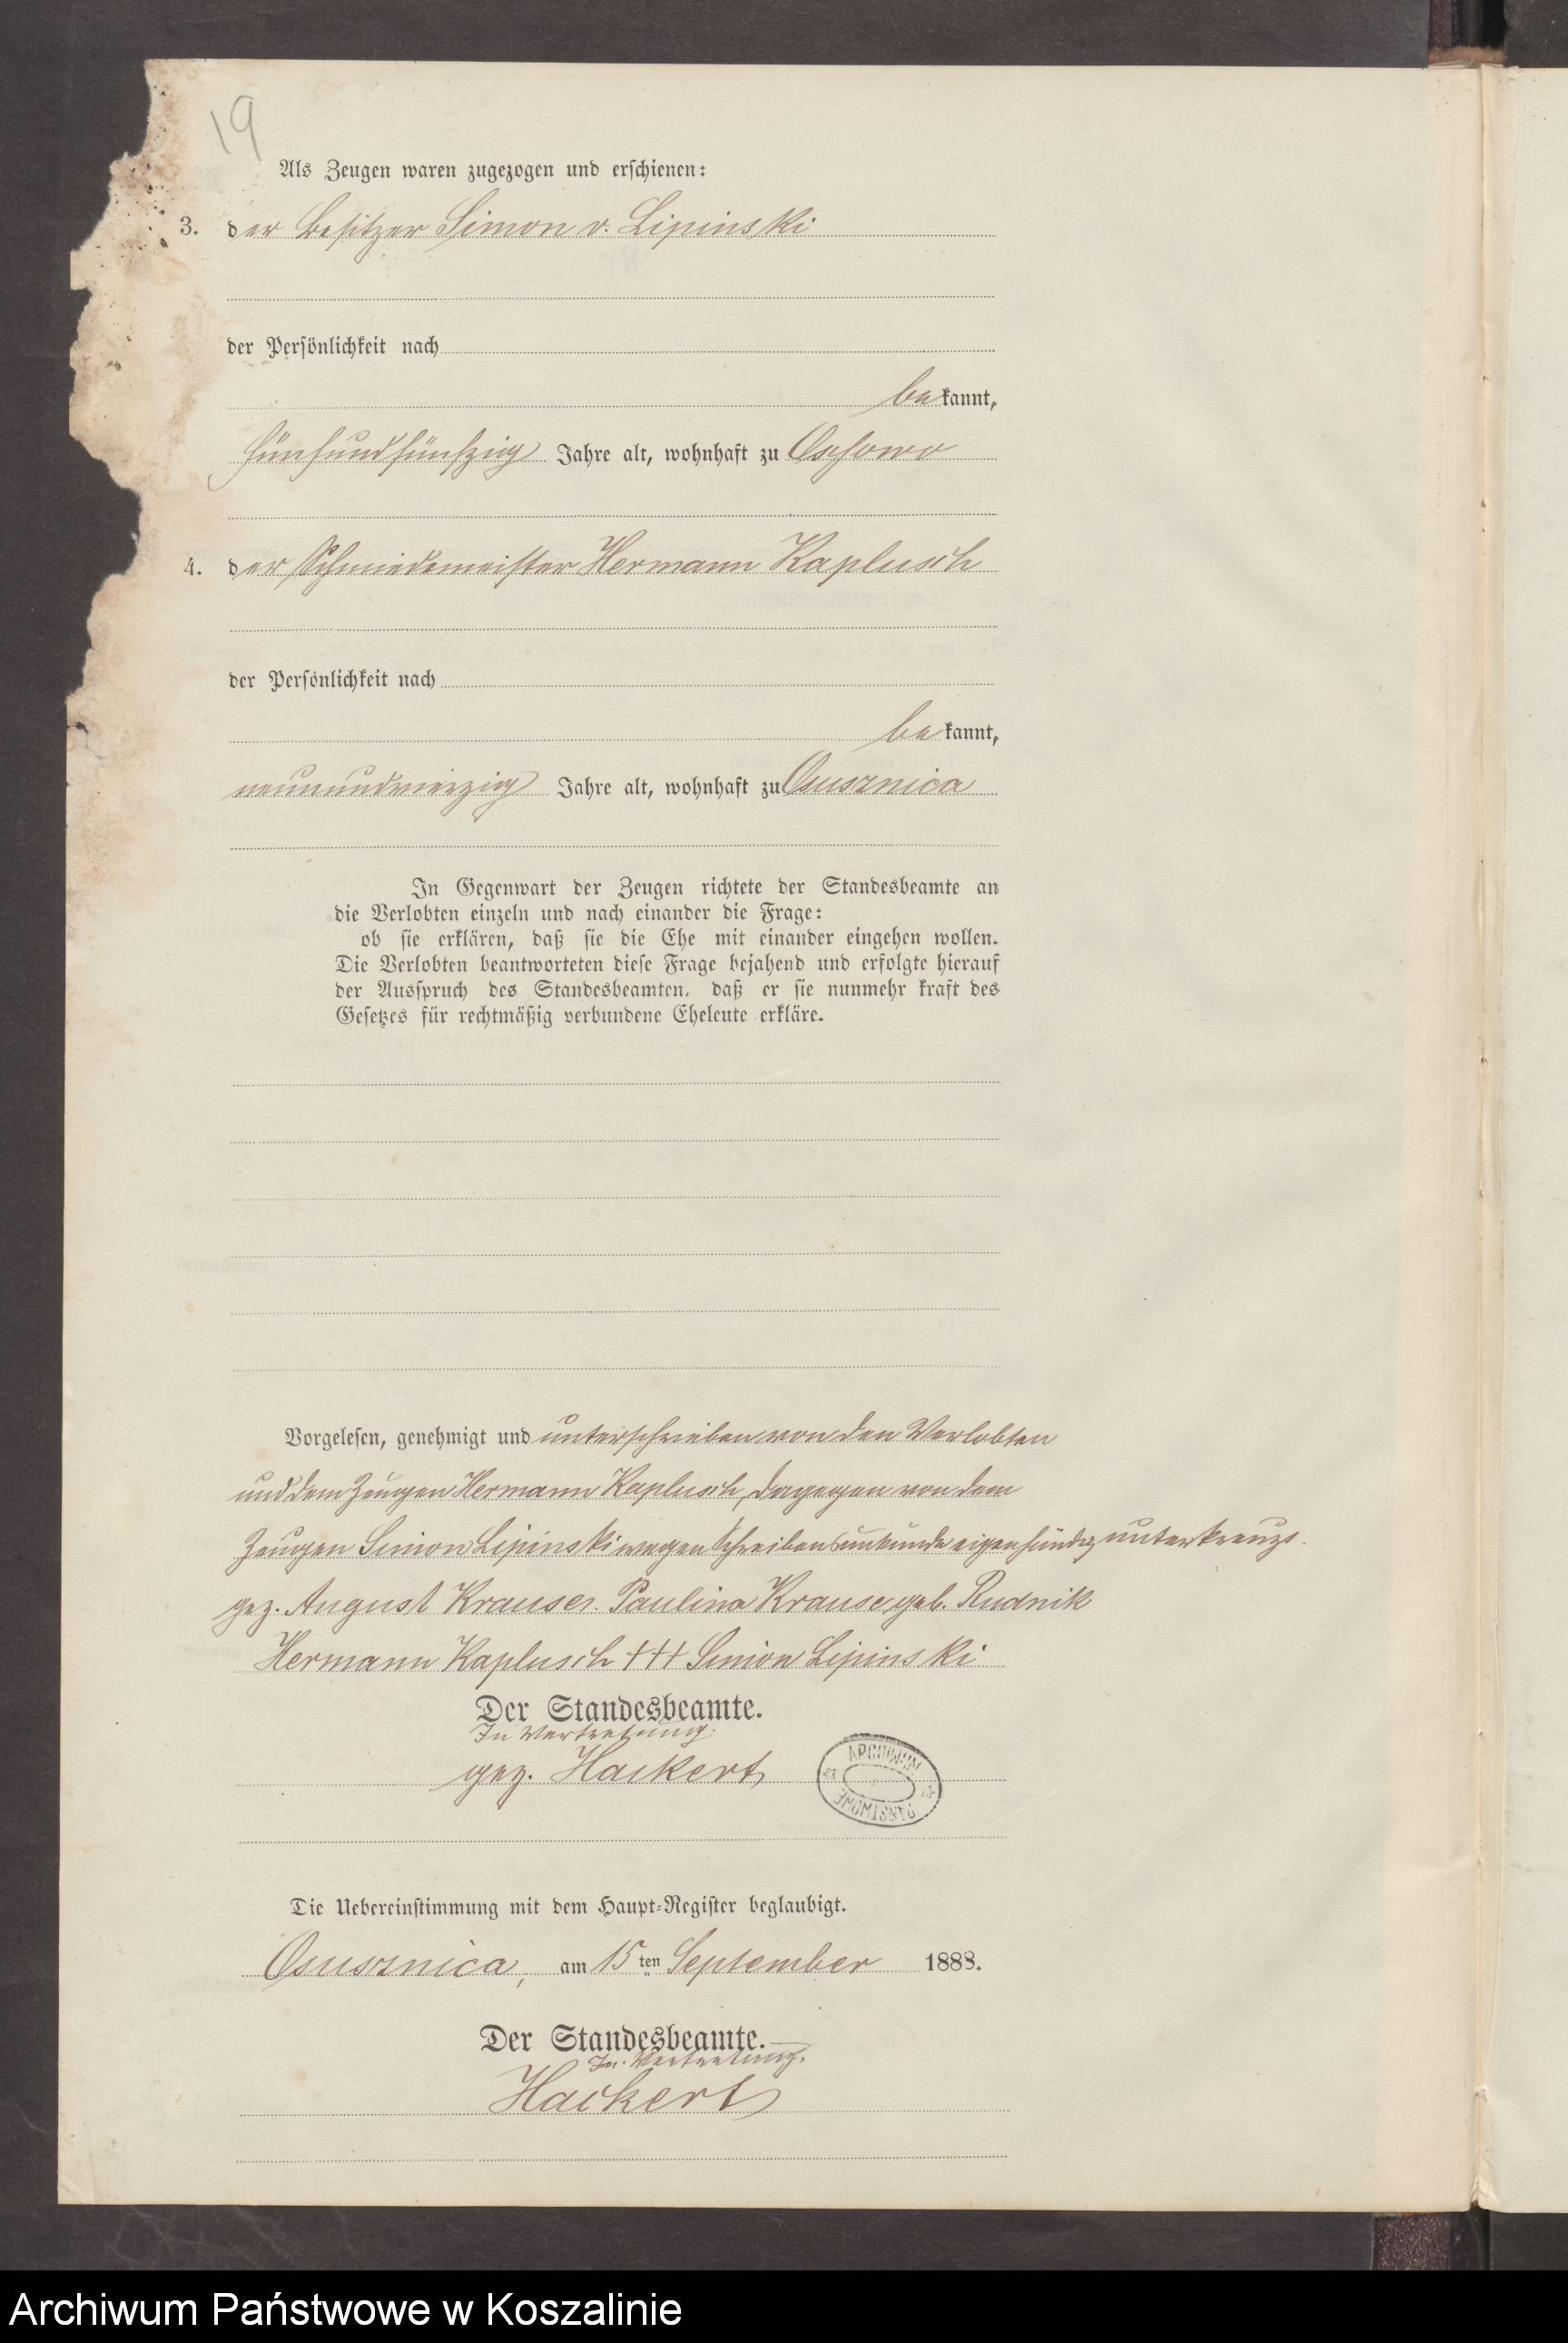 19
Als Zeugen waren zugezogen und erschienen:
3. der Besitzer Simon v. Lipinski
der Persönlichkeit nach
bekannt,
fünfundfünfzig Jahre alt, wohnhaft zu
4. der Schmiedemeister Hermann Kaplusch
der Persönlichkeit nach
bekannt,
neunundvierzig Jahre alt, wohnhaft zu Osusznica
In Gegenwart der Zeugen richtete der Standesbeamte an
die Verlobten einzeln und nach einander die Frage:
ob sie erklären, daß sie die Ehe mit einander eingehen wollen.
Die Verlobten beantworteten diese Frage bejahend und erfolgte hierauf
der Ausspruch des Standesbeamten, daß er sie nunmehr kraft des
Gesetzes für rechtmäßig verbundene Eheleute erkläre.
Vorgelesen, genehmigt und unterschrieben von den Verlobten
und dem Zeugen Hermann Kaplusch, dagegen von dem
Zeugen Simon Lipinski wegen Schreibensunkunde eigenhändig unterkreuzt.
gez. August Krause. Paulina Krause geb. Rudnik
Hermann Kaplusch +++ Simon Lipinski
Der Standesbeamte.
In Vertretung.
gez. Hackert
ARCHIWUM
PAŃSTWOWE
Die Uebereinstimmung mit dem Haupt-Register beglaubigt.
Osusznica, am 15ten September 1888.
Der Standesbeamte.
In Vertretung.
Hackert
Archiwum Państwowe w Koszalinie